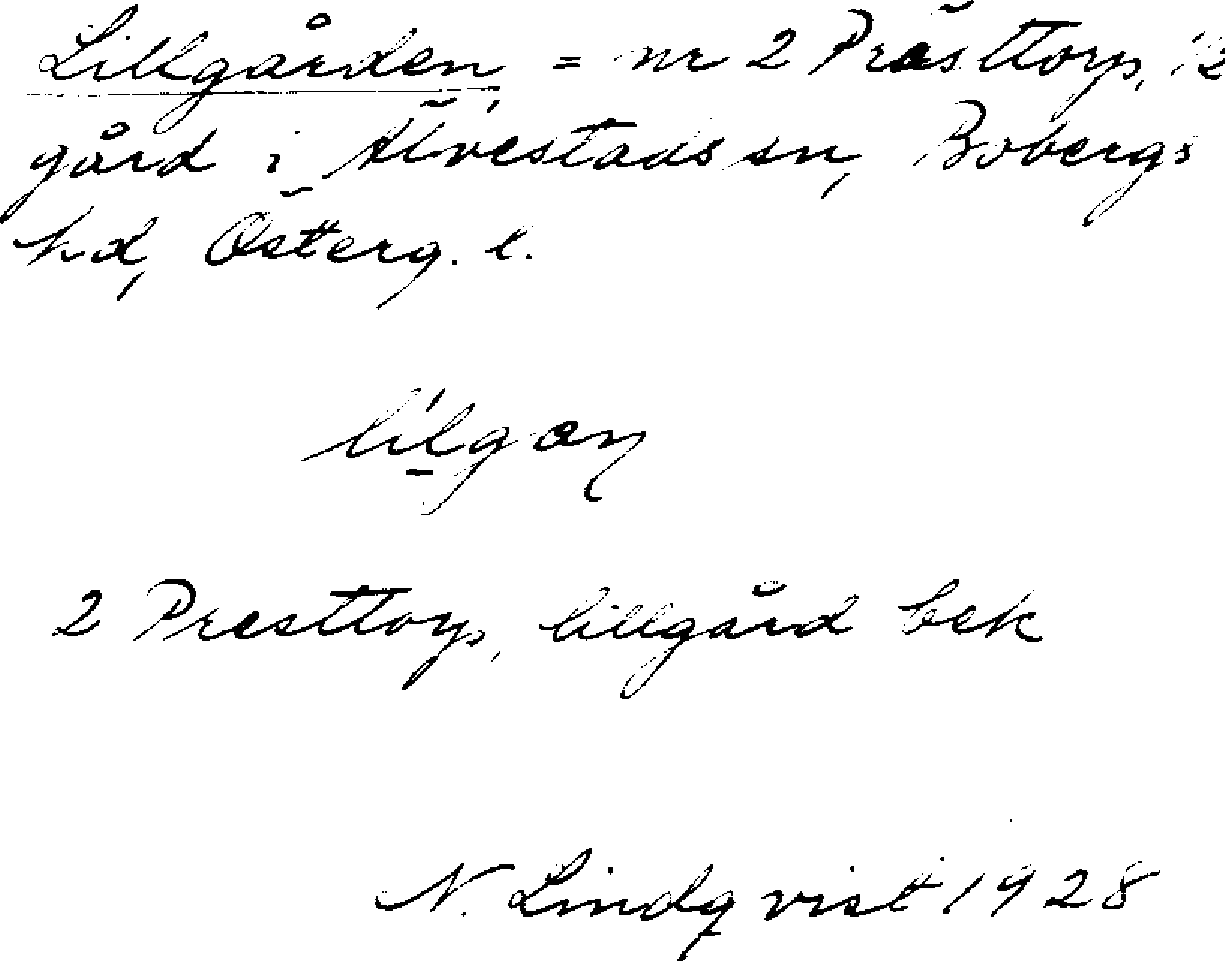 Lillgården, = nr 2 Prästtorp, 1/2
gård i Älvestads sn, Bobergs
hd, Österg. l.
2 Presttorp, lillgård bek
N. Lindqvist 1928